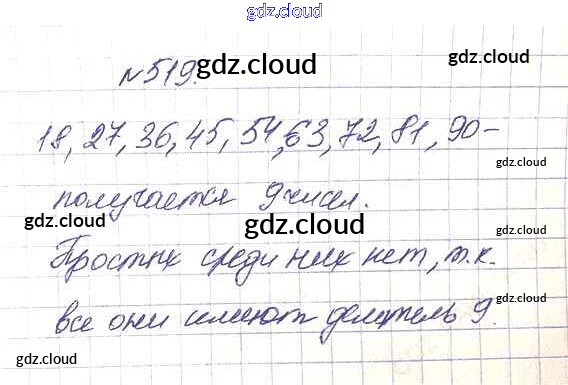 gdz.cloud
№519. gdz.cloud
gdz.cloud
18, 27, 36, 45, 54, 63, 72, 81, 90-
gdz.cloud
получается 9 чисел.
gdz.cloud gdz.cloud
Простых среди них нет, т.к.
gdz.cloud
все они имеют делитель 9.
gdz.cloud gdz.cloud